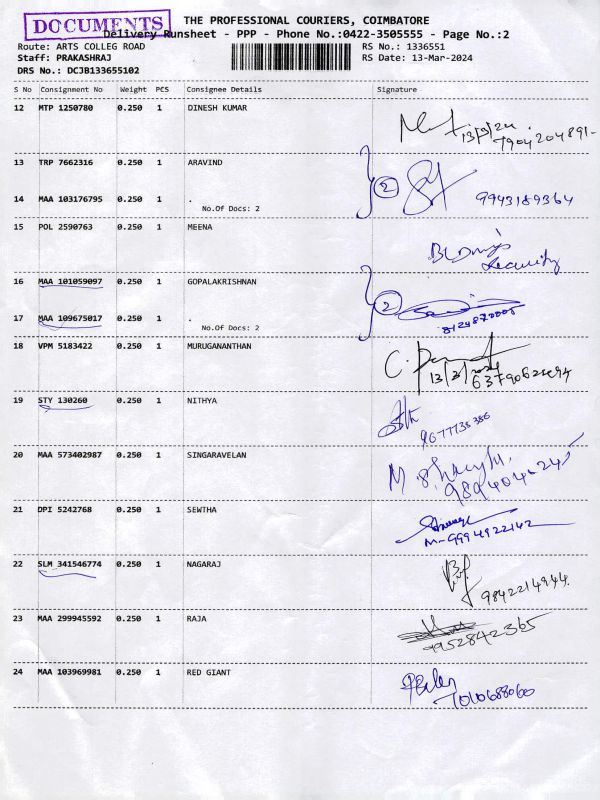 DOCUMENTS
THE PROFESSIONAL COURIERS, COIMBATORE
Delivery Runsheet - PPP - Phone No.:0422-3505555 - Page No.:2
Route: ARTS COLLEG ROAD
RS No.: 1336551
Staff: PRAKASHRAJ
RS Date: 13-Mar-2024
DRS No.: DCJB133655102
S No Consignment No Weight PCS Consignee Details Signature
12 MTP 1250780 0.250 1 DINESH KUMAR
13/3/24
7904204891-
13 TRP 7662316 0.250 1 ARAVIND
2
9943189364
14 MAA 103176795 0.250 1 .
No.Of Docs: 2
15 POL 2590763 0.250 1 MEENA
Security
16 MAA 101059097 0.250 1 GOPALAKRISHNAN
2
17 MAA 109675017 0.250 1 .
No.Of Docs: 2
18 VPM 5183422 0.250 1 MURUGANANTHAN
C.
13/3/2024
19 STY 130260 0.250 1 NITHYA
20 MAA 573402987 0.250 1 SINGARAVELAN
M.
21 DPI 5242768 0.250 1 SEWTHA
M-9994922142
22 SLM 341546774 0.250 1 NAGARAJ
9842214944.
23 MAA 299945592 0.250 1 RAJA
9952842365
24 MAA 103969981 0.250 1 RED GIANT